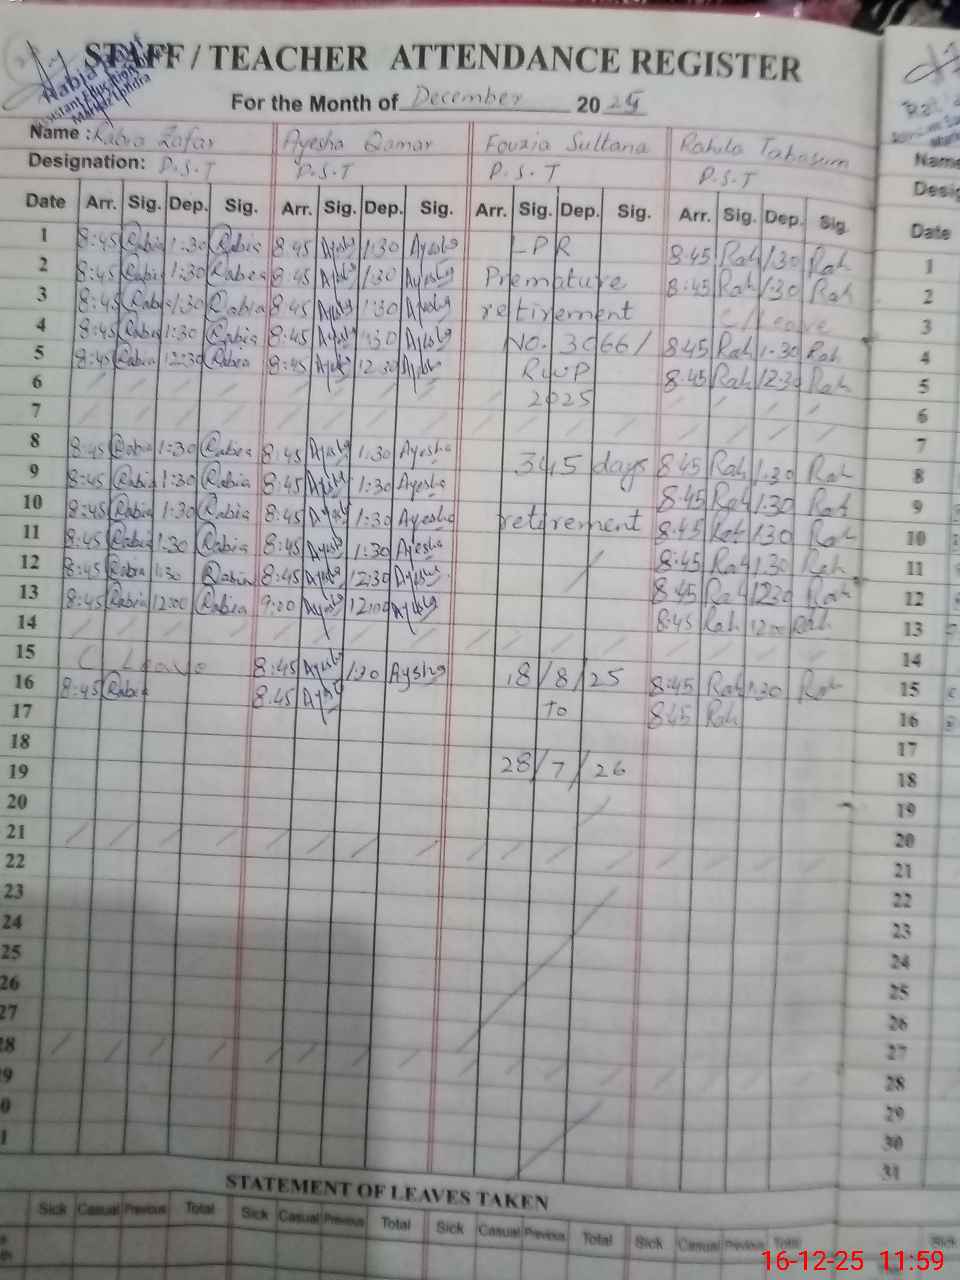 STAFF / TEACHER ATTENDANCE REGISTER
For the Month of December 2025
Name : Rabia Zafar Ayesha Qamar Fouzia Sultana Rahila Tabasum
Designation: P.S.T P.S.T P.S.T P.S.T
Date Arr. Sig. Dep. Sig. Arr. Sig. Dep. Sig. Arr. Sig. Dep. Sig. Arr. Sig. Dep. Sig. Date
1 8:45 Rabia 1:30 Rabia 8:45 Aysha 1:30 Aysha LPR 8:45 Rah 1:30 Rah 1
2 8:45 Rabia 1:30 Rabia 8:45 Aysha 1:30 Aysha Premature 8:45 Rah 1:30 Rah 2
3 8:45 Rabia 1:30 Rabia 8:45 Aysha 1:30 Aysha retirement C/Leave 3
4 8:45 Rabia 1:30 Rabia 8:45 Aysha 1:30 Aysha No. 3066/ 8:45 Rah 1:30 Rah 4
5 8:45 Rabia 12:30 Rabia 8:45 Aysha 12:30 Aysha RWP 8:45 Rah 12:30 Rah 5
6 2025 6
7 7
8 8:45 Rabia 1:30 Rabia 8:45 Aysha 1:30 Ayesha 345 days 8:45 Rah 1:30 Rah 8
9 8:45 Rabia 1:30 Rabia 8:45 Aysha 1:30 Ayesha 8:45 Rah 1:30 Rah 9
10 8:45 Rabia 1:30 Rabia 8:45 Aysha 1:30 Ayesha retirement 8:45 Rah 1:30 Rah 10
11 8:45 Rabia 1:30 Rabia 8:45 Aysha 1:30 Ayesha 8:45 Rah 1:30 Rah 11
12 8:45 Rabia 1:30 Rabia 8:45 Aysha 12:30 Aysha 8:45 Rah 12:30 Rah 12
13 8:45 Rabia 12:00 Rabia 9:00 Aysha 12:00 Aysha 8:45 Rah 12:00 Rah 13
14 14
15 C Leave 8:45 Aysha 1:30 Aysha 18/8/25 8:45 Rah 1:30 Rah 15
16 8:45 Rabia 8:45 Aysha to 8:45 Rah 16
17 17
18 28/7/26 18
19 19
20 20
21 21
22 22
23 23
24 24
25 25
26 26
27 27
28 28
29 29
30 30
31 31
STATEMENT OF LEAVES TAKEN
Sick Casual Previous Total Sick Casual Previous Total Sick Casual Previous Total Sick Casual Previous Total Sick
16-12-25 11:59